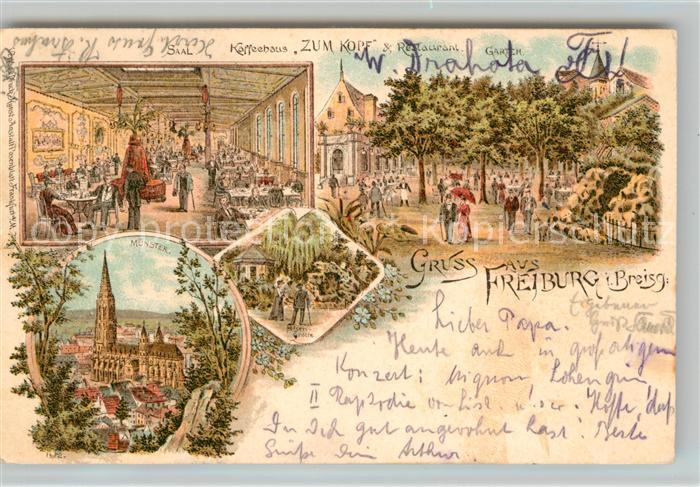 Herzl. Gruss R. Drahota
SAAL
Kaffeehaus "ZUM KOPF" & Restaurant.
GARTEN.
W. Drahota
MÜNSTER.
Grotte
GRUSS AUS
FREIBURG i. Breisg:
Lieber Papa.
Heute auch in großartigem
Konzert: Mignon, Lohengrin,
II Rapsodie von List. u.s.w. Hoffe, daß
Du Dich gut angewöhnt hast. Beste
Grüße Dein Arthur